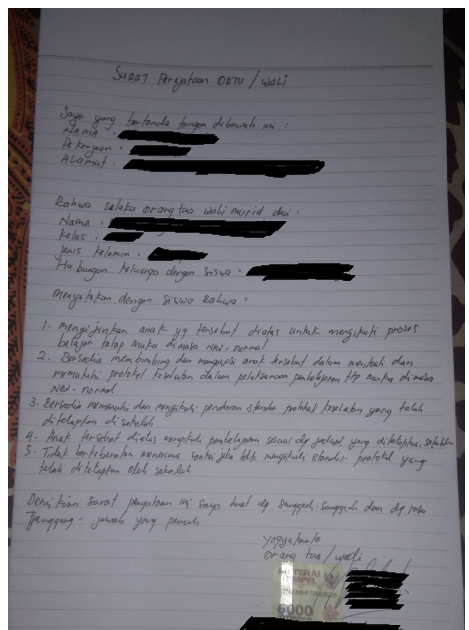 SURAT Pernyataan ORTU / WALI
Saya yang bertanda tangan dibawah ini :
NAMA :
Pekerjaan :
ALamat :
Bahwa selaku orang tua wali murid dari :
Nama :
Kelas :
Jenis Kelamin :
Hubungan keluarga dengan Siswa :
Menyatakan dengan Siswa Bahwa :
1. Mengijinkan anak yg tersebut diatas untuk mengikuti proses
belajar tatap muka dimasa New-normal
2. Bersedia membimbing dan mengawasi anak tersebut dalam mentaati dan
mematuhi protokol kesehatan dalam pelaksanaan pembelajaran ttp muka dimasa
New-normal
3. Bersedia memenuhi dan mengikuti standar protokol kesehatan yang telah
ditetapkan di sekolah
4. Anak tersebut diatas mengikuti pembelajaran sesuai dg jadwal yang ditetapkan sekolah
5. Tidak berkeberatan menerima sanksi jika tdk mengikuti standar protokol yang
telah ditetapkan oleh sekolah
Demikian surat pernyataan ini saya buat dg sungguh-sungguh dan dg rasa
Tanggung-jawab yang penuh
Yogyakarta
Orang tua / wali
METERAI
TEMPEL
6000